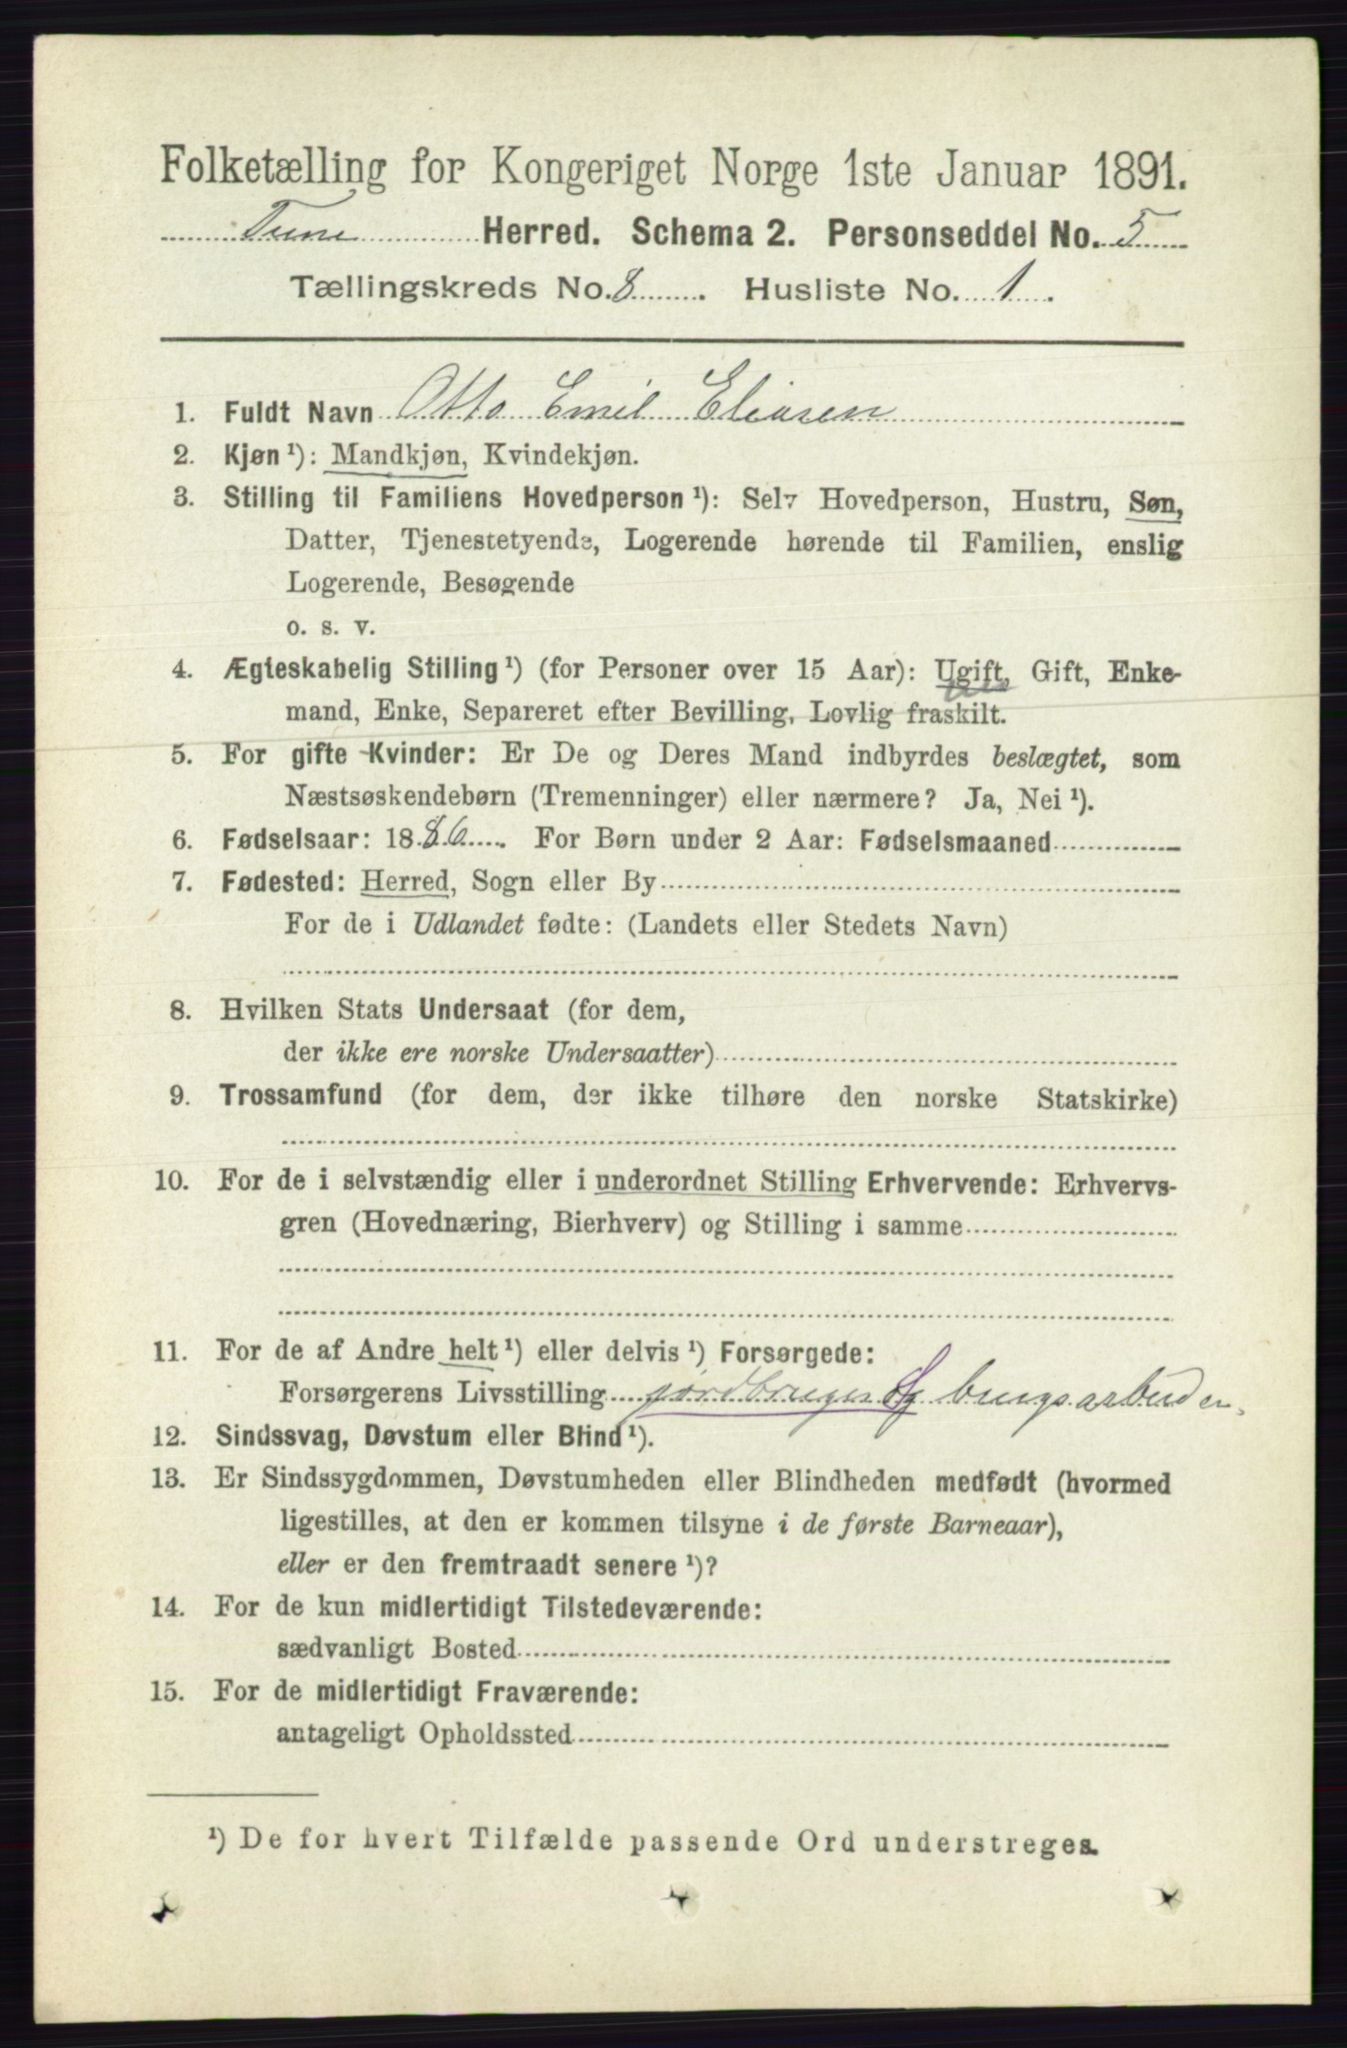 Folketælling for Kongeriget Norge 1ste Januar 1891.
Tune Herred. Schema 2. Personseddel No. 5
Tællingskreds No. 8. Husliste No. 1.
1. Fuldt Navn Otto Emil Eliasen
2. Kjøn ¹): Mandkjøn, Kvindekjøn.
3. Stilling til Familiens Hovedperson ¹): Selv Hovedperson, Hustru, Søn,
Datter, Tjenestetyende, Logerende hørende til Familien, enslig
Logerende, Besøgende
o. s. v.
4. Ægteskabelig Stilling ¹) (for Personer over 15 Aar): Ugift, Gift, Enke-
mand, Enke, Separeret efter Bevilling, Lovlig fraskilt.
5. For gifte Kvinder: Er De og Deres Mand indbyrdes beslægtet, som
Næstsøskendebørn (Tremenninger) eller nærmere? Ja, Nei ¹).
6. Fødselsaar: 1886. For Børn under 2 Aar: Fødselsmaaned
7. Fødested: Herred, Sogn eller By
For de i Udlandet fødte: (Landets eller Stedets Navn)
8. Hvilken Stats Undersaat (for dem,
der ikke ere norske Undersaatter)
9. Trossamfund (for dem, der ikke tilhøre den norske Statskirke)
10. For de i selvstændig eller i underordnet Stilling Erhvervende: Erhvervs-
gren (Hovednæring, Bierhverv) og Stilling i samme
11. For de af Andre helt ¹) eller delvis ¹) Forsørgede:
Forsørgerens Livsstilling jordbruger og
12. Sindssvag, Døvstum eller Blind ¹).
13. Er Sindssygdommen, Døvstumheden eller Blindheden medfødt (hvormed
ligestilles, at den er kommen tilsyne i de første Barneaar),
eller er den fremtraadt senere ¹)?
14. For de kun midlertidigt Tilstedeværende:
sædvanligt Bosted
15. For de midlertidigt Fraværende:
antageligt Opholdssted
¹) De for hvert Tilfælde passende Ord understreges.